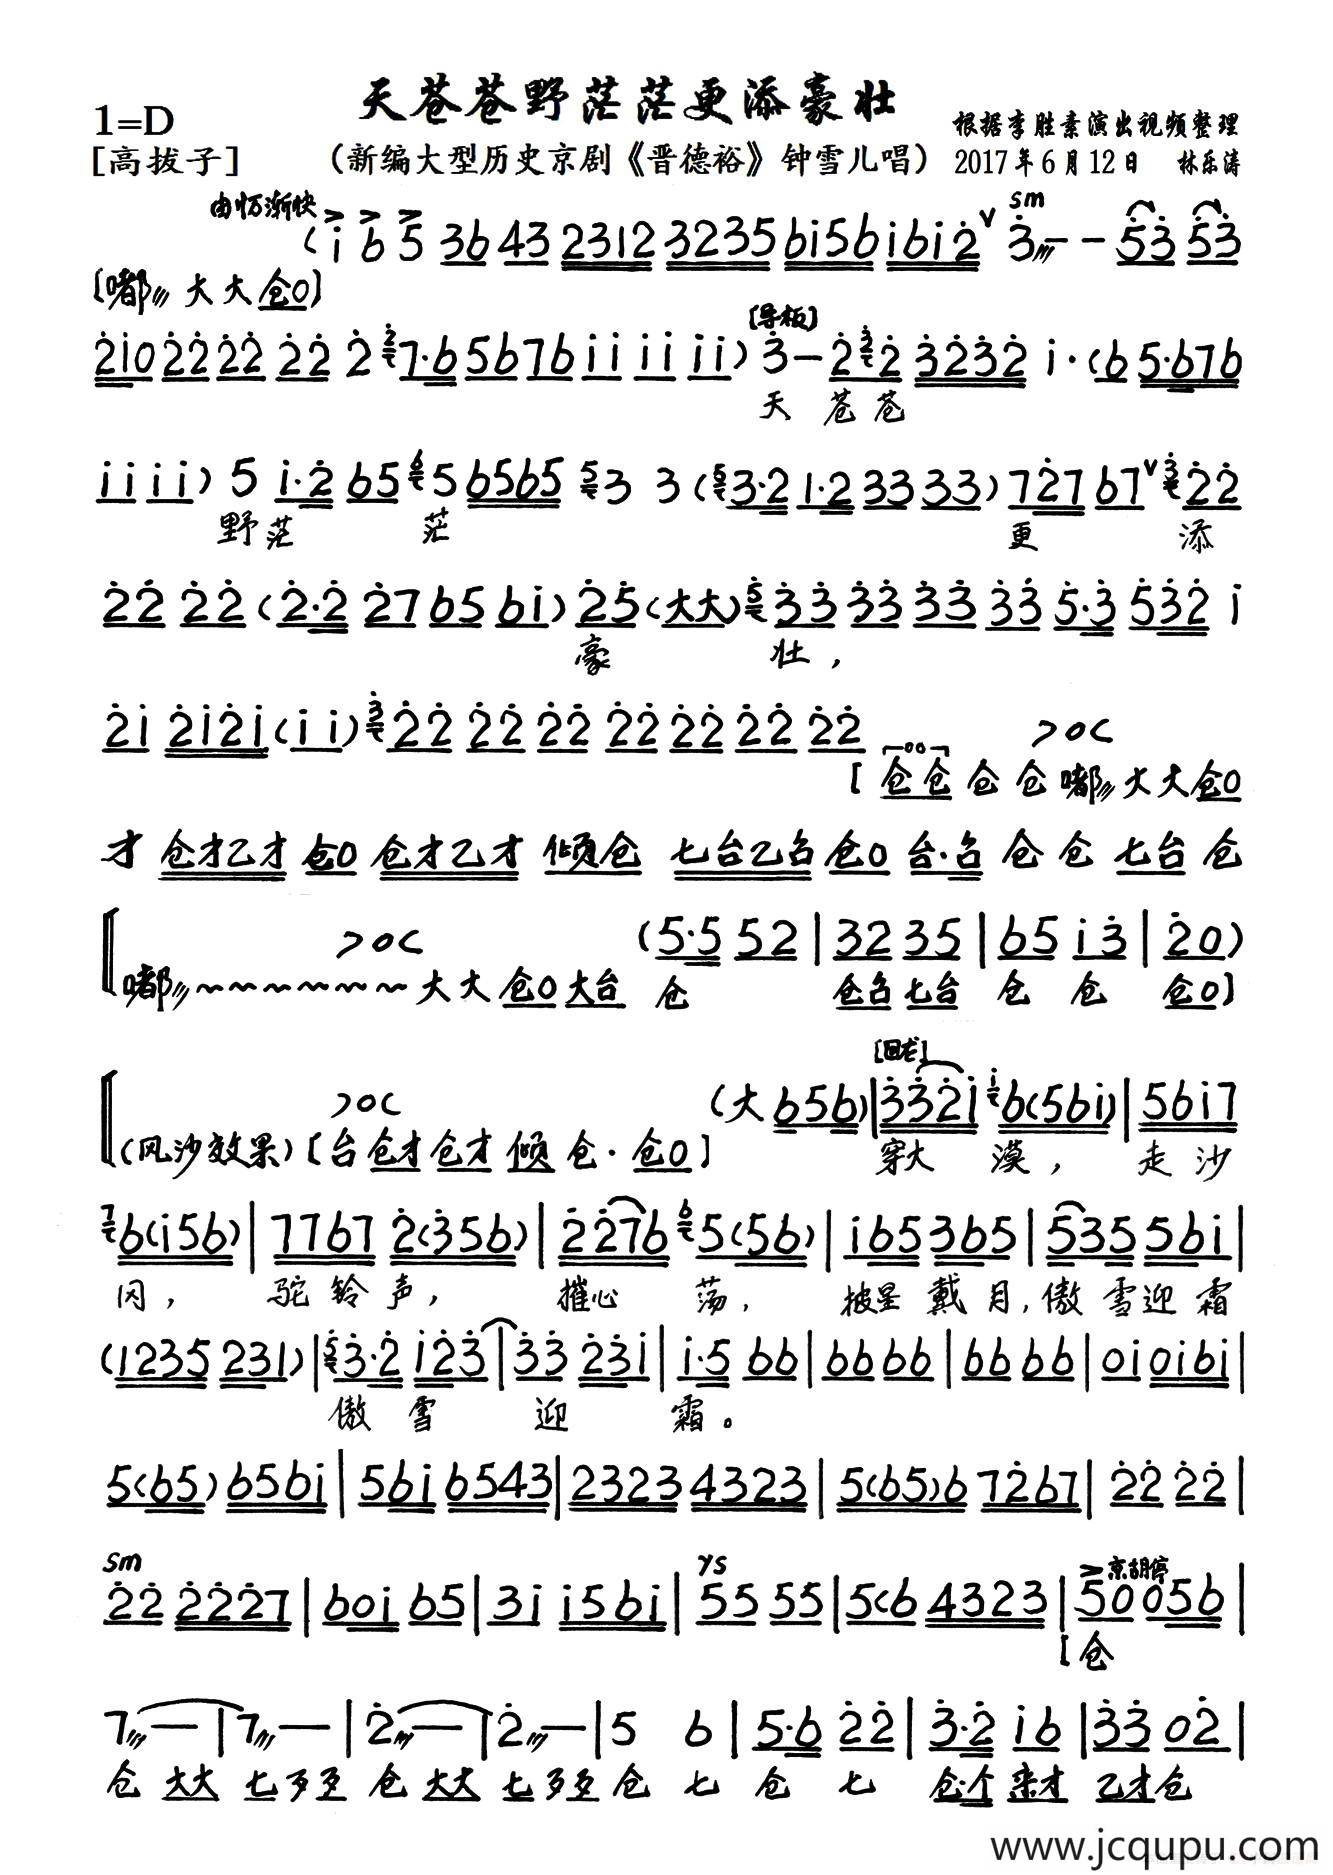 天苍苍野茫茫更添豪壮
1=D
[高拔子]
（新编大型历史京剧《晋德裕》钟雪儿唱）
根据李胜素演出视频整理
2017年6月12日 林乐涛
由忄万渐快
( i 6 5 36 43 2312 3235 6i56 i6i2 ∨ sm 3 - - 53 53
[嘟 大大仓0]
2i0 22 22 22 2 7·6 56 76 ii ii ii) [导板] 3 - 2 2 3232 i·(6 5·676
天 苍 苍
ii ii) 5 i·2 65 5 6565 3 3 (3·2 1·2 33 33) 727 67 ∨ 22
野茫 茫 更 添
22 22 (2·2 27 65 6i) 25 (大大) 33 33 33 33 5·3 532 i
豪 壮，
2i 2i2i (ii) 22 22 22 22 22 22 22
>0<
[仓仓 仓 仓 嘟 大大仓0
才 仓才乙才 仓0 仓才乙才 倾仓 七台乙台 仓0 台·台 仓 仓 七台 仓
>0< (5·5 52 | 32 35 | 65 i3 | 20)
嘟～～～～～～～ 大大 仓0 大台 仓 仓台 七台 仓 仓 仓0]
>0< (大 656) | [回龙] 332i 6(56i) | 56i7
(风沙效果) [台 仓才仓才 倾 仓· 仓0]
穿大 漠， 走 沙
6(i56) | 7767 2(356) | 2276 5(56) | i65 365 | 535 56i |
闪， 驼铃声， 摧心 荡， 披星 戴月，傲雪迎霜
(1235 231) | 3·2 i23 | 33 23i | i·5 66 | 66 66 | 66 66 | 0i 0i6i |
傲 雪 迎 霜。
5(65) 656i | 56i 6543 | 2323 4323 | 5(65)6 7267 | 22 22 |
sm
22 2227 | 60i 65 | 3i i56i |
ys
55 55 | 5(6 4323 |
京胡停
50 056 |
[仓
7 - | 7 - | 2 - | 2 - | 5 6 | 5·6 22 | 3·2 i6 | 33 02 |
仓 大大 七 歹歹 仓 大大 七 歹歹 仓 七 仓 七 仓·个 来才 乙才仓
www.jcqupu.com